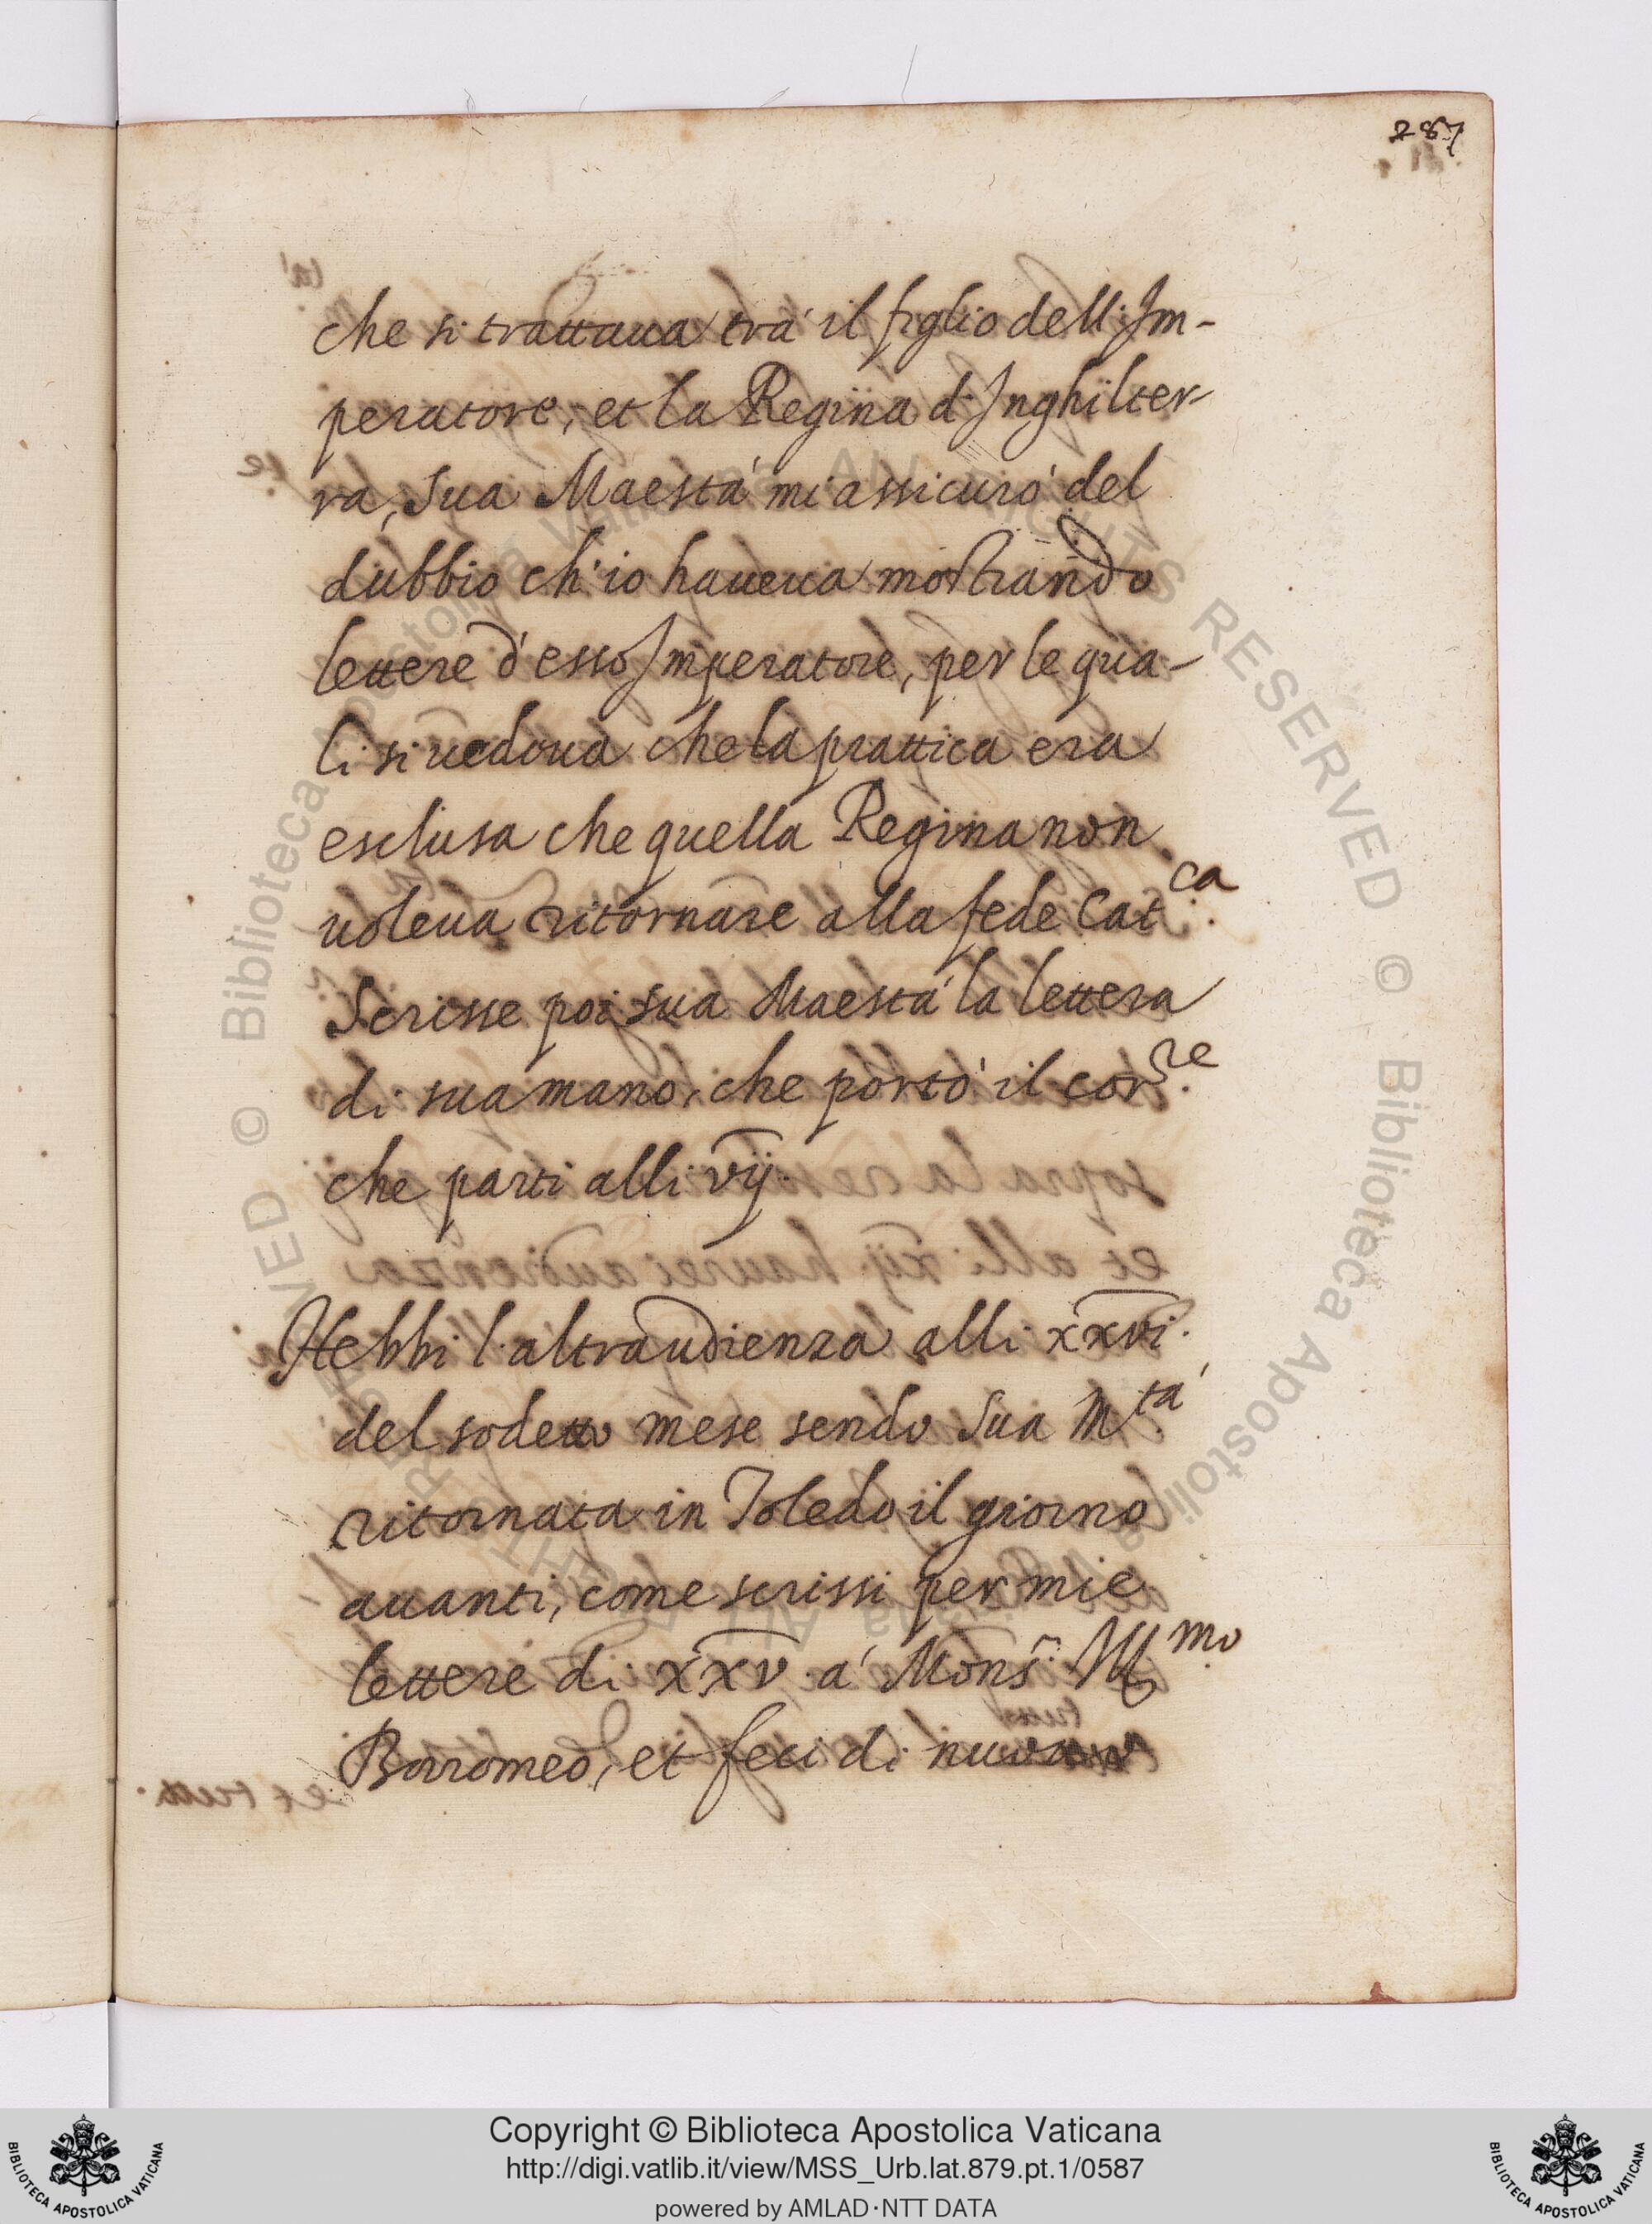 287
che si trattaua trà il figlio dell'Im-
peratore, et la Regina d'Inghilter-
ra, Sua Maestà mi assicurò del
dubbio ch'io haueua mostrando
lettere d'esso Imperatore, per le qua-
li si uedeua che la prattica era
esclusa che quella Regina non
uoleua ritornare alla fede Cat.ca
Scrisse poi sua Maestà la lettera
di sua mano, che portò il cor.re
che parti alli vij.
Hebbi l'altr'audienza alli xxvi.
del sodetto mese sendo Sua M.tà
ritornata in Toledo il giorno
auanti, come scrissi per mie
lettere di xxv. à Mons.r Ill.mo
Borromeo, et feci di nuouo
Copyright © Biblioteca Apostolica Vaticana
http://digi.vatlib.it/view/MSS_Urb.lat.879.pt.1/0587
powered by AMLAD·NTT DATA
BIBLIOTECA APOSTOLICA VATICANA
BIBLIOTECA APOSTOLICA VATICANA